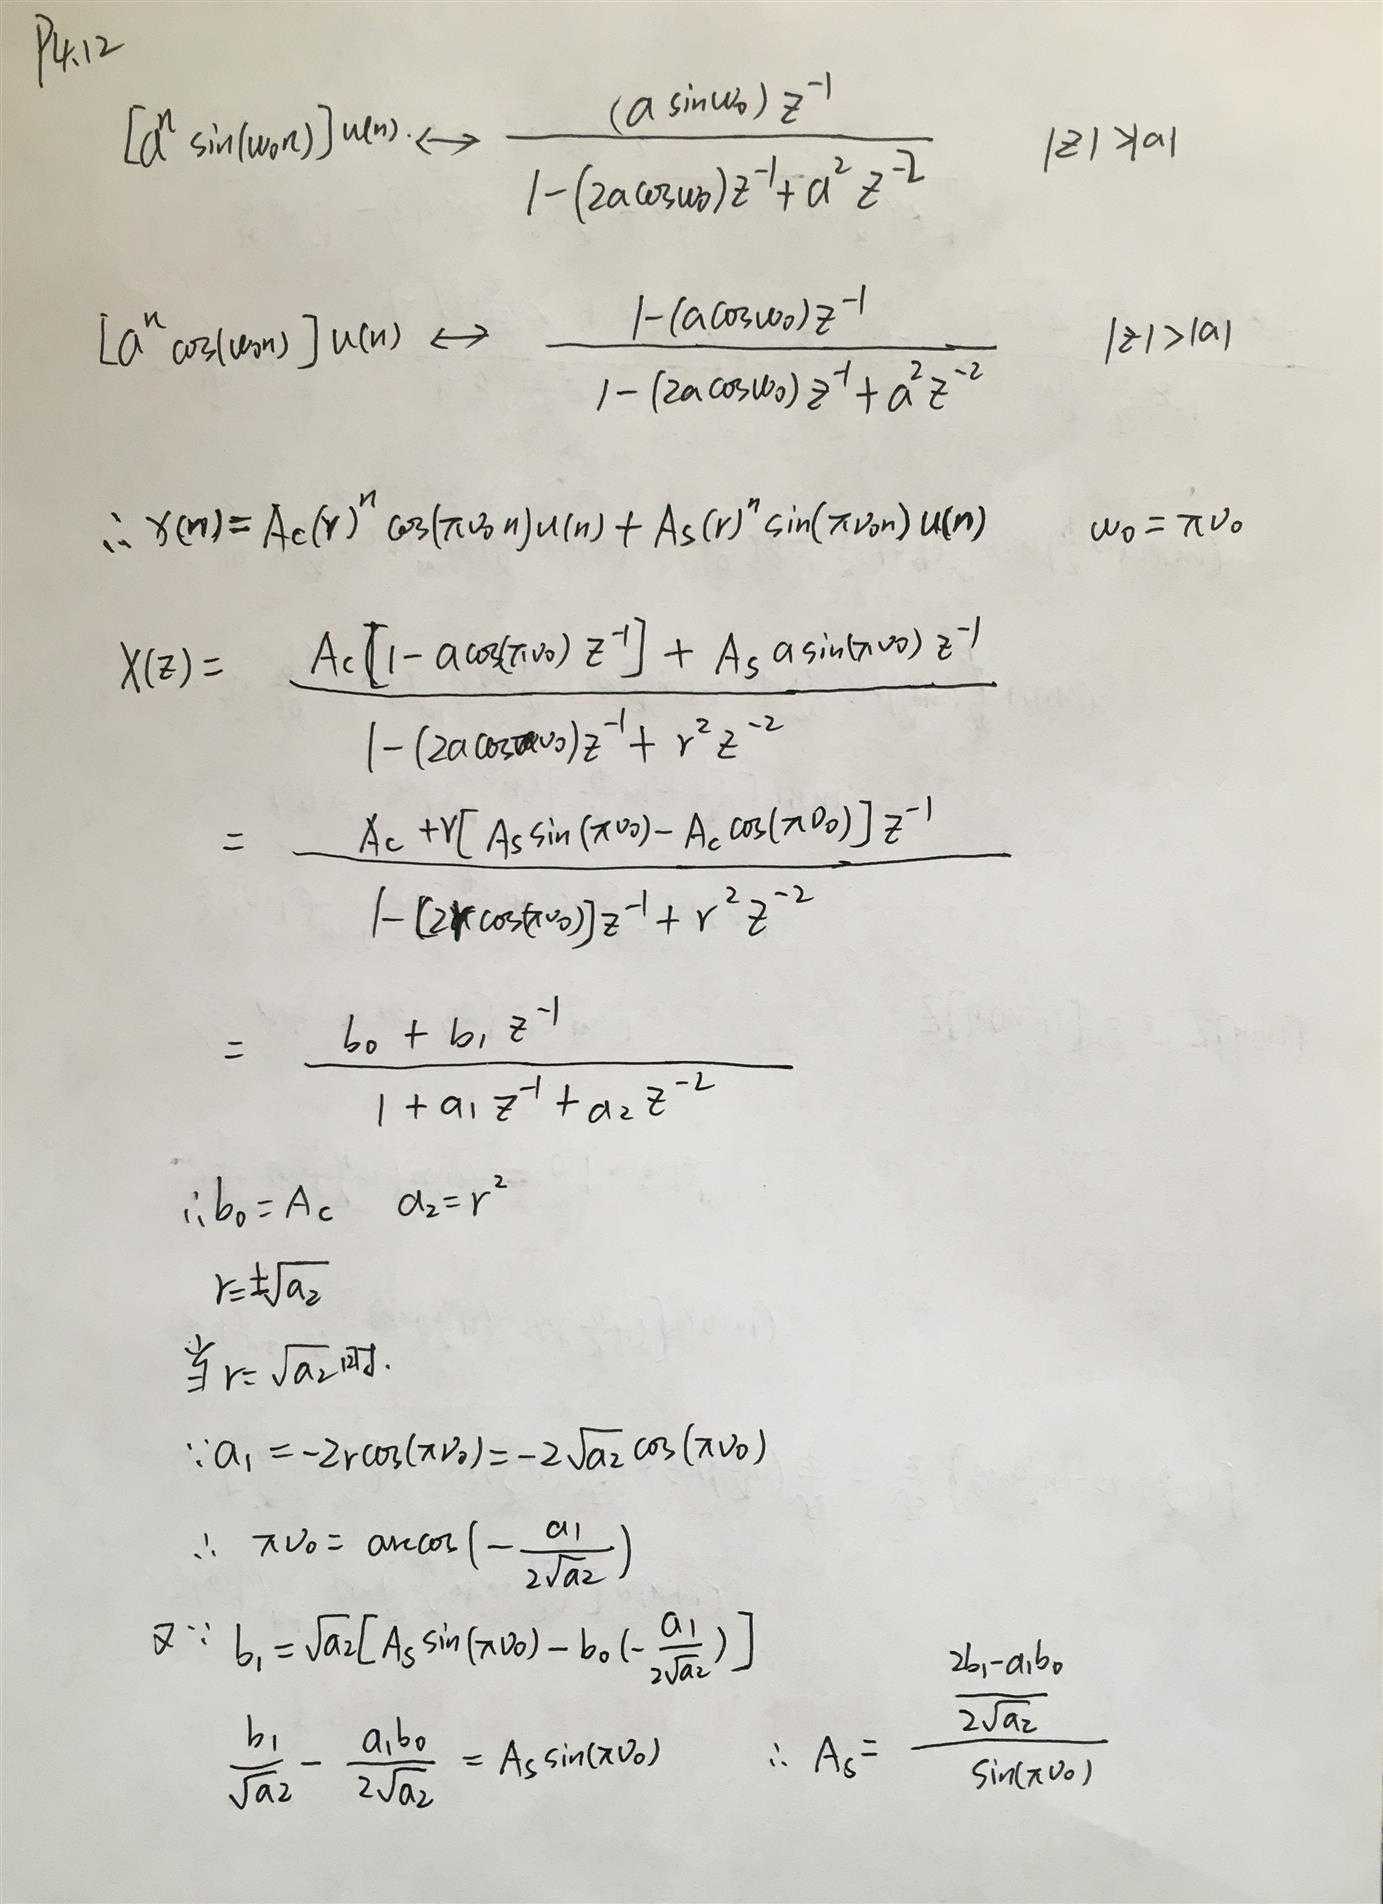 P4.12
[aⁿ sin(ω₀n)]u(n). ↔ (a sinω₀) z⁻¹ / 1-(2a cosω₀)z⁻¹+a² z⁻² |z|>|a|
[aⁿ cos(ω₀n)]u(n) ↔ 1-(a cosω₀)z⁻¹ / 1-(2a cosω₀)z⁻¹+a²z⁻² |z|>|a|
∴ x(n)=Ac(r)ⁿ cos(πv₀n)u(n)+As(r)ⁿ sin(πv₀n)u(n) ω₀=πv₀
X(z)= Ac[1-a cos(πv₀) z⁻¹] + As a sin(πv₀) z⁻¹ / 1-(2a cosπv₀)z⁻¹+r²z⁻²
= Ac+r[As sin(πv₀)-Ac cos(πv₀)]z⁻¹ / 1-[2r cos(πv₀)]z⁻¹+r²z⁻²
= b₀+b₁z⁻¹ / 1+a₁z⁻¹+a₂z⁻²
∴b₀=Ac a₂=r²
r=±√a₂
当r=√a₂时.
∵a₁=-2rcos(πv₀)=-2√a₂ cos(πv₀)
∴ πv₀=arccos(-a₁/2√a₂)
又∵ b₁=√a₂[As sin(πv₀)-b₀(-a₁/2√a₂)]
b₁/√a₂ - a₁b₀/2√a₂ = As sin(πv₀) ∴ As= (2b₁-a₁b₀/2√a₂) / sin(πv₀)